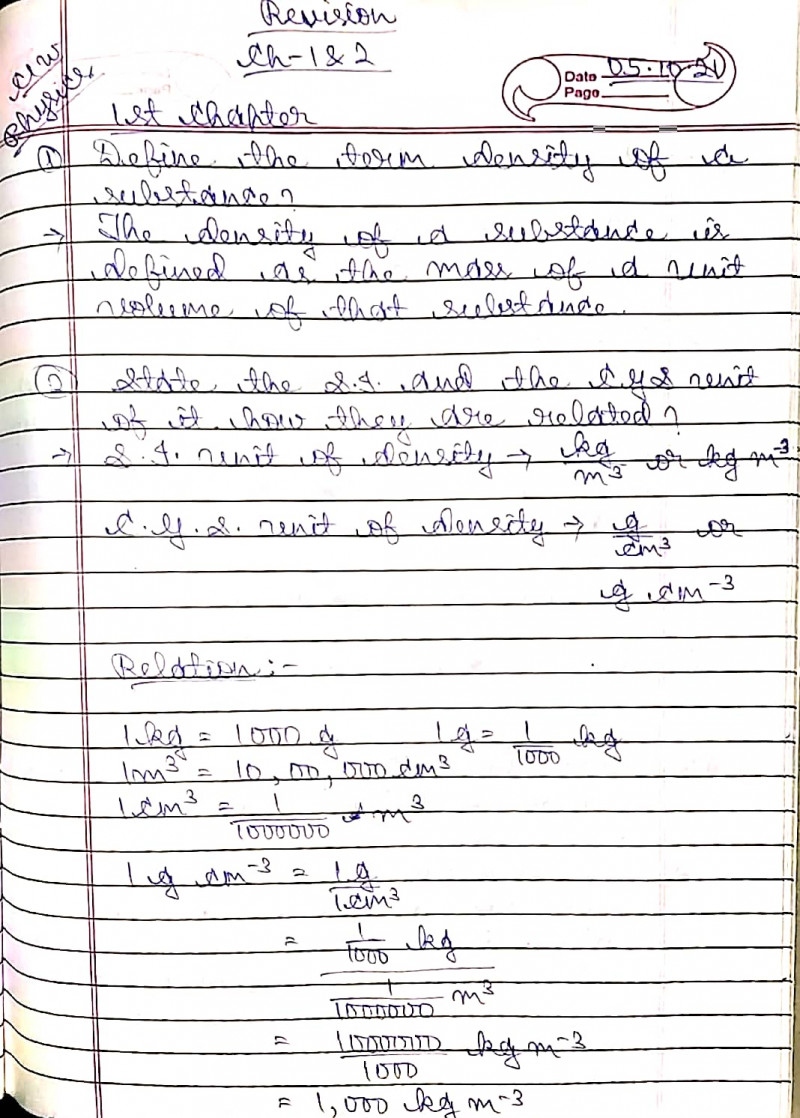 Revision
Ch-1&2
C.W
Physics.
Date 05.10.21
Page
1st Chapter
① Define the term density of a
substance?
→ The density of a substance is
defined as the mass of a unit
volume of that substance.
② State the S.I. and the C.G.S unit
of it how they are related?
→ S.I. unit of density → kg/m³ or kg m⁻³
C.G.S. unit of density → g/cm³ or
g cm⁻³
Relation :-
1 kg = 1000 g 1 g = 1/1000 kg
1m³ = 10,00,000 cm³
1 cm³ = 1/1000000 m³
1 g cm⁻³ = 1g/1cm³
= 1/1000 kg
1/1000000 m³
= 1000000/1000 kg m⁻³
= 1,000 kg m⁻³